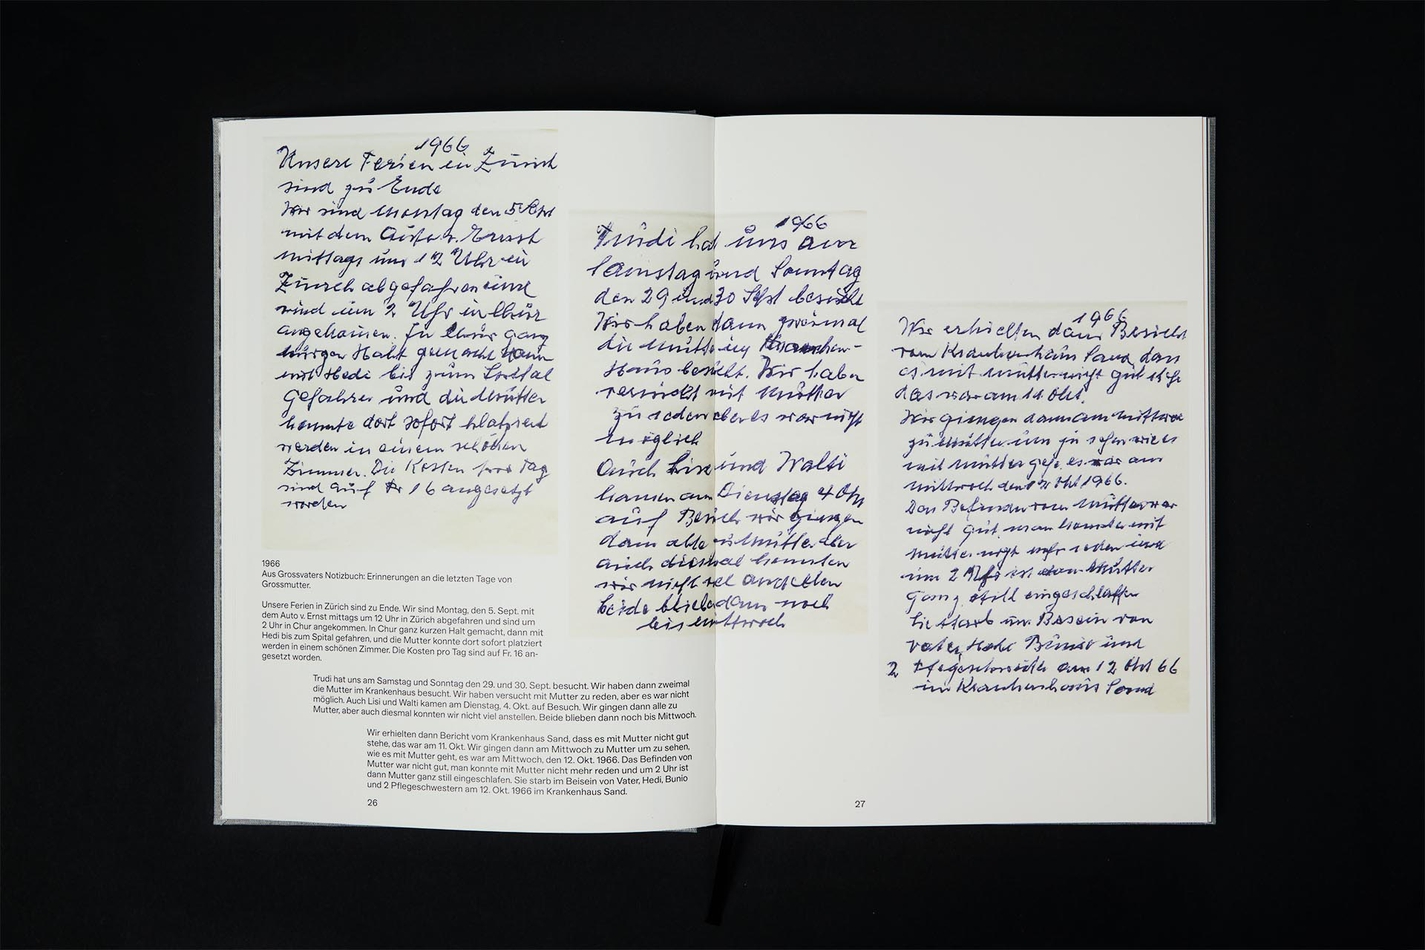 1966
Unsere Ferien in Zürich
sind zu Ende
Wir sind Montag den 5 Sept
mit dem Auto v. Ernst
mittags um 12 Uhr in
Zürich abgefahren und
sind um 2 Uhr in Chur
angekommen. In Chur ganz
kurzen Halt gemacht dann
mit Hedi bis zum Spital
gefahren und die Mutter
konnte dort sofort platziert
werden in einem schönen
Zimmer. Die Kosten pro Tag
sind auf Fr 16 angesetzt
worden
1966
Aus Grossvaters Notizbuch: Erinnerungen an die letzten Tage von
Grossmutter.
Unsere Ferien in Zürich sind zu Ende. Wir sind Montag, den 5. Sept. mit
dem Auto v. Ernst mittags um 12 Uhr in Zürich abgefahren und sind um
2 Uhr in Chur angekommen. In Chur ganz kurzen Halt gemacht, dann mit
Hedi bis zum Spital gefahren, und die Mutter konnte dort sofort platziert
werden in einem schönen Zimmer. Die Kosten pro Tag sind auf Fr. 16 an-
gesetzt worden.
Trudi hat uns am Samstag und Sonntag den 29. und 30. Sept. besucht. Wir haben dann zweimal
die Mutter im Krankenhaus besucht. Wir haben versucht mit Mutter zu reden, aber es war nicht
möglich. Auch Lisi und Walti kamen am Dienstag, 4. Okt. auf Besuch. Wir gingen dann alle zu
Mutter, aber auch diesmal konnten wir nicht viel anstellen. Beide blieben dann noch bis Mittwoch.
Wir erhielten dann Bericht vom Krankenhaus Sand, dass es mit Mutter nicht gut
stehe, das war am 11. Okt. Wir gingen dann am Mittwoch zu Mutter um zu sehen,
wie es mit Mutter geht, es war am Mittwoch, den 12. Okt. 1966. Das Befinden von
Mutter war nicht gut, man konnte mit Mutter nicht mehr reden und um 2 Uhr ist
dann Mutter ganz still eingeschlafen. Sie starb im Beisein von Vater, Hedi, Bunio
und 2 Pflegeschwestern am 12. Okt. 1966 im Krankenhaus Sand.
26
1966
Trudi hat uns am
Samstag und Sonntag
den 29 und 30 Sept besucht
Wir haben dann zweimal
die Mutter im Kranken-
Haus besucht. Wir haben
versucht mit Mutter
zu reden aber es war nicht
möglich
Auch Lisi und Walti
kamen am Dienstag 4 Okt
auf Besuch wir gingen
dann alle zu Mutter. aber
auch diesmal konnten
wir nicht viel anstellen
beide blieben dann noch
bis Mittwoch
1966
Wir erhielten dann Bericht
vom Krankenhaus Sand dass
es mit Mutter nicht gut stehe
das war am 11 Okt.
Wir gingen dann am Mittwoch
zu Mutter um zu sehen wie es
mit Mutter geht es war am
Mittwoch den 12 Okt 1966.
Das Befinden von Mutter war
nicht gut, man konnte mit
Mutter nicht mehr reden und
um 2 Uhr ist dann Mutter
ganz still eingeschlafen
Sie starb im Beisein von
Vater, Hedi Bunio und
2 Pflegeschwestern am 12 Okt 66
im Krankenhaus Sand
27